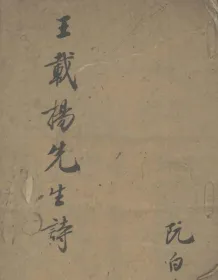 王載揚先生詩
阮白